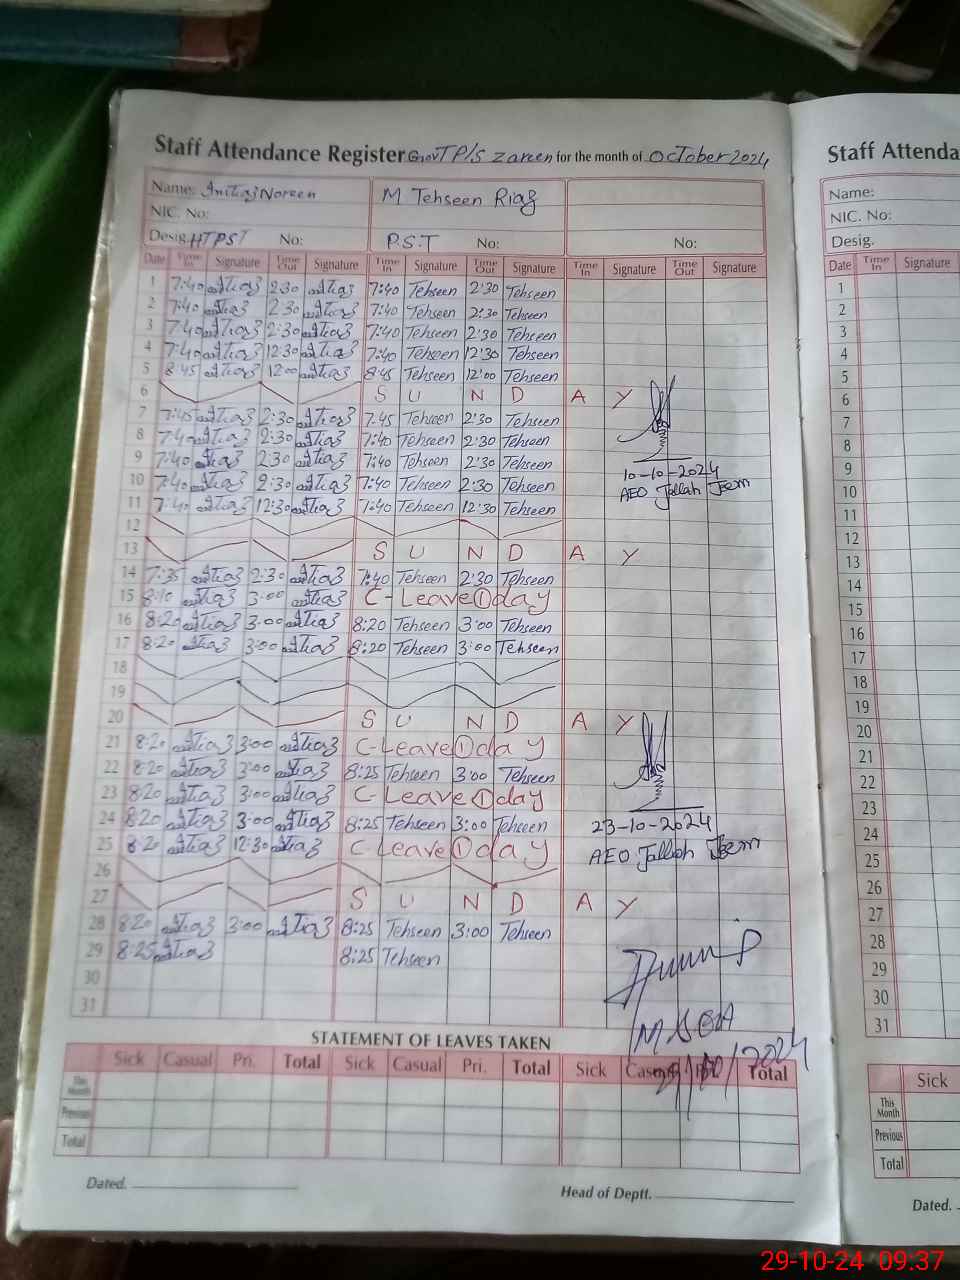 Staff Attendance Register Govt P/S Zareen for the month of October 2024
Name: Imtiaz Noreen M Tehseen Riaz
NIC. No:
Desig. HTPST No: P.S.T No: No:
Date Time In Signature Time Out Signature Time In Signature Time Out Signature Time In Signature Time Out Signature
1 7:40 2:30 7:40 Tehseen 2:30 Tehseen
2 7:40 2:30 7:40 Tehseen 2:30 Tehseen
3 7:40 2:30 7:40 Tehseen 2:30 Tehseen
4 7:40 12:30 7:40 Tehseen 12:30 Tehseen
5 8:45 12:00 8:45 Tehseen 12:00 Tehseen
6 S U N D A Y
7 7:45 2:30 7:45 Tehseen 2:30 Tehseen
8 7:40 2:30 7:40 Tehseen 2:30 Tehseen
9 7:40 2:30 7:40 Tehseen 2:30 Tehseen
10-10-2024
10 7:40 2:30 7:40 Tehseen 2:30 Tehseen
AEO Jallah Jeem
11 7:40 12:30 7:40 Tehseen 12:30 Tehseen
12
13 S U N D A Y
14 7:35 2:30 7:40 Tehseen 2:30 Tehseen
15 8:10 3:00 C-Leave 1 day
16 8:20 3:00 8:20 Tehseen 3:00 Tehseen
17 8:20 3:00 8:20 Tehseen 3:00 Tehseen
18
19
20 S U N D A Y
21 8:20 3:00 C-Leave 1 day
22 8:20 3:00 8:25 Tehseen 3:00 Tehseen
23 8:20 3:00 C-Leave 1 day
24 8:20 3:00 8:25 Tehseen 3:00 Tehseen
23-10-2024
25 8:20 12:30 C-Leave 1 day
AEO Jallah Jeem
26
27 S U N D A Y
28 8:20 3:00 8:25 Tehseen 3:00 Tehseen
29 8:25 8:25 Tehseen
30
31
STATEMENT OF LEAVES TAKEN
Sick Casual Pri. Total Sick Casual Pri. Total Sick Casual Pri. Total
This Month
Previous
Total
Dated. Head of Deptt.
Staff Attenda
Name:
NIC. No:
Desig.
Date Time In Signature
1
2
3
4
5
6
7
8
9
10
11
12
13
14
15
16
17
18
19
20
21
22
23
24
25
26
27
28
29
30
31
Sick
This Month
Previous
Total
Dated.
29-10-24 09:37